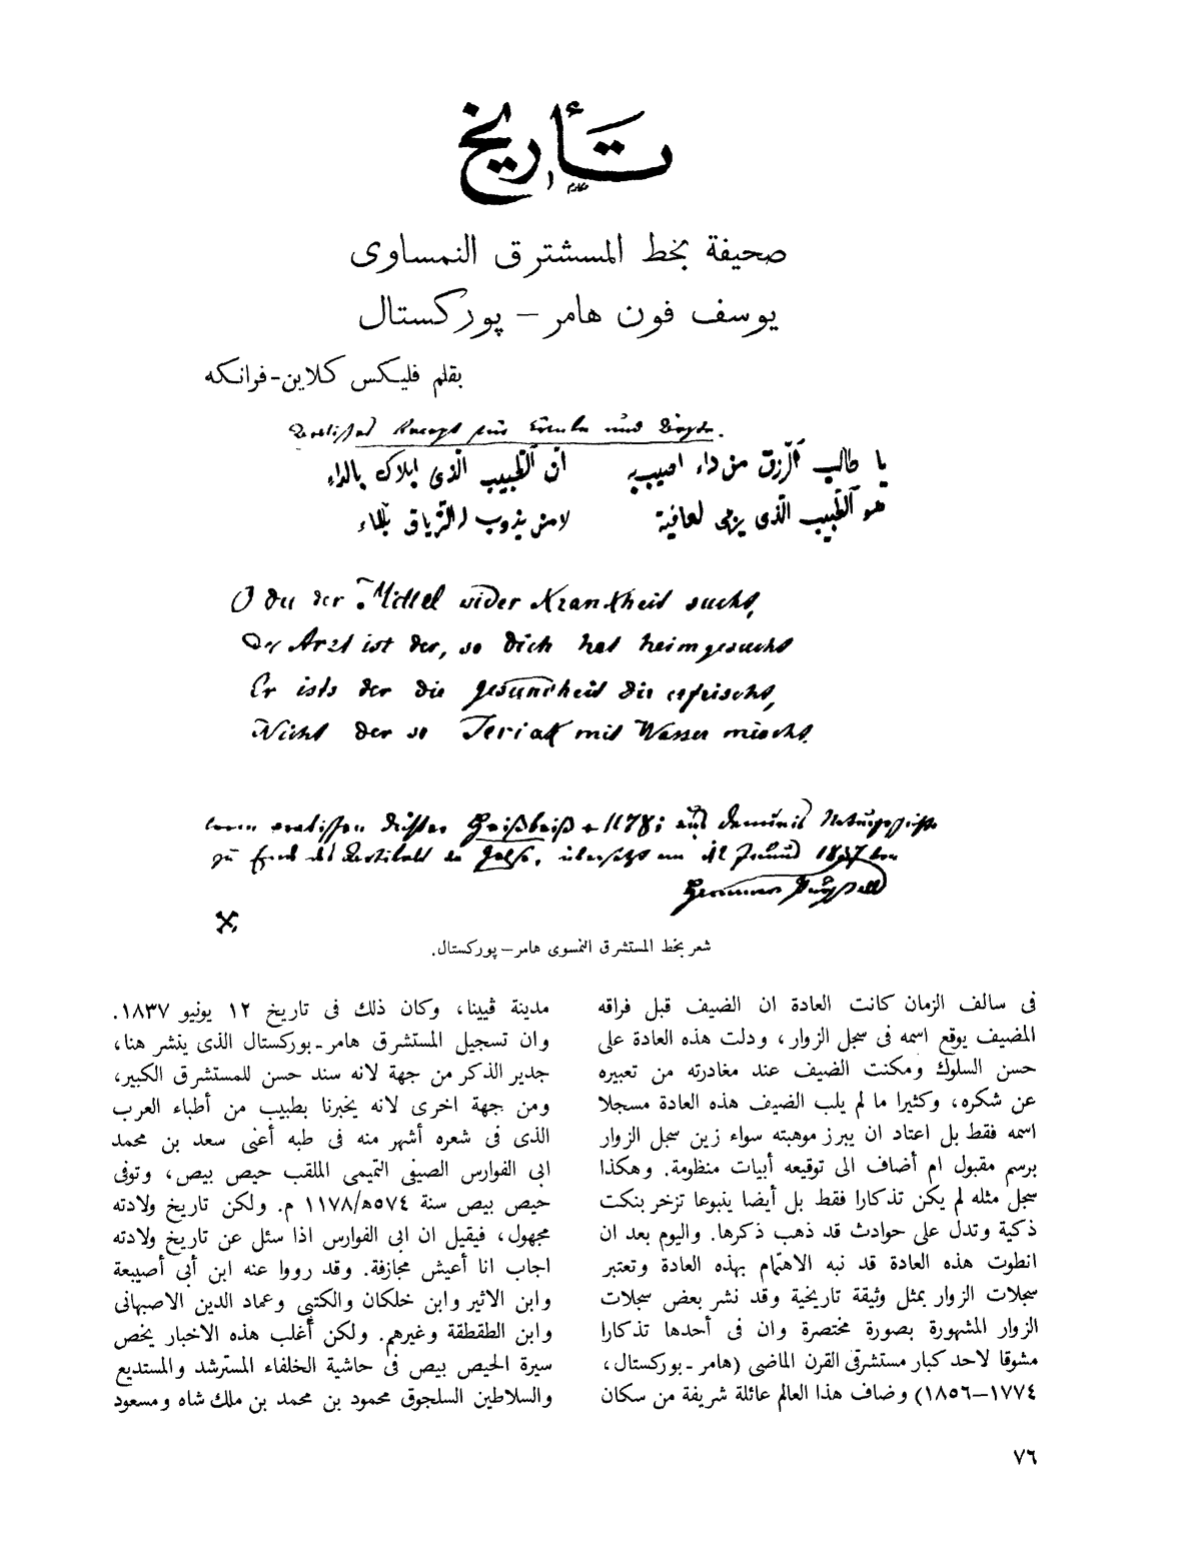 تأريخ
صحيفة بخط المسشترق النمساوى
يوسف فون هامر – پوركستال
بقلم فليكس كلاين-فرانكه
يا طالب الرزق من داء اصيب به
ان الطبيب الذى ابلاك بالداء
هو الطبيب الذى يرجى لعافية
لا من يذوب لى الترياق بالماء
O du der Mittel wider Krankheit sucht,
Der Arzt ist der, so dich hat heimgesucht
Er ists der die gesundheit dir erfrischt,
Nicht der so Teriak mit Wasser mischt.
شعر بخط المستشرق النمسوى هامر – پوركستال.
فى سالف الزمان كانت العادة ان الضيف قبل فراقه
المضيف يوقع اسمه فى سجل الزوار، ودلت هذه العادة على
حسن السلوك ومكنت الضيف عند مغادرته من تعبيره
عن شكره، وكثيرا ما لم يلب الضيف هذه العادة مسجلا
اسمه فقط بل اعتاد ان يبرز موهبته سواء زين سجل الزوار
برسم مقبول ام أضاف الى توقيعه أبيات منظومة. وهكذا
سجل مثله لم يكن تذكارا فقط بل أيضا ينبوعا تزخر بنكت
ذكية وتدل على حوادث قد ذهب ذكرها. واليوم بعد ان
انطوت هذه العادة قد نبه الاهتمام بهذه العادة وتعتبر
سجلات الزوار بمثل وثيقة تاريخية وقد نشر بعض سجلات
الزوار المشهورة بصورة مختصرة وان فى أحدها تذكارا
مشوقا لاحد كبار مستشرقى القرن الماضى (هامر ـ بوركستال،
١٧٧٤–١٨٥٦) وضاف هذا العالم عائلة شريفة من سكان
مدينة ڤيينا، وكان ذلك فى تاريخ ١٢ يونيو ١٨٣٧.
وان تسجيل المستشرق هامر ـ بوركستال الذى ينشر هنا،
جدير الذكر من جهة لانه سند حسن للمستشرق الكبير،
ومن جهة اخرى لانه يخبرنا بطبيب من أطباء العرب
الذى فى شعره أشهر منه فى طبه أعنى سعد بن محمد
ابى الفوارس الصيفى التميمى الملقب حيص بيص، وتوفى
حيص بيص سنة ٥٧٤ه/١١٧٨ م. ولكن تاريخ ولادته
مجهول، فيقيل ان ابى الفوارس اذا سئل عن تاريخ ولادته
اجاب انا أعيش مجازفة. وقد رووا عنه ابن أبى أصيبعة
وابن الاثير وابن خلكان والكتبى وعماد الدين الاصبهانى
وابن الطقطقة وغيرهم. ولكن أغلب هذه الاخبار يخص
سيرة الحيص بيص فى حاشية الخلفاء المسترشد والمستديع
والسلاطين السلجوق محمود بن محمد بن ملك شاه ومسعود
٧٦